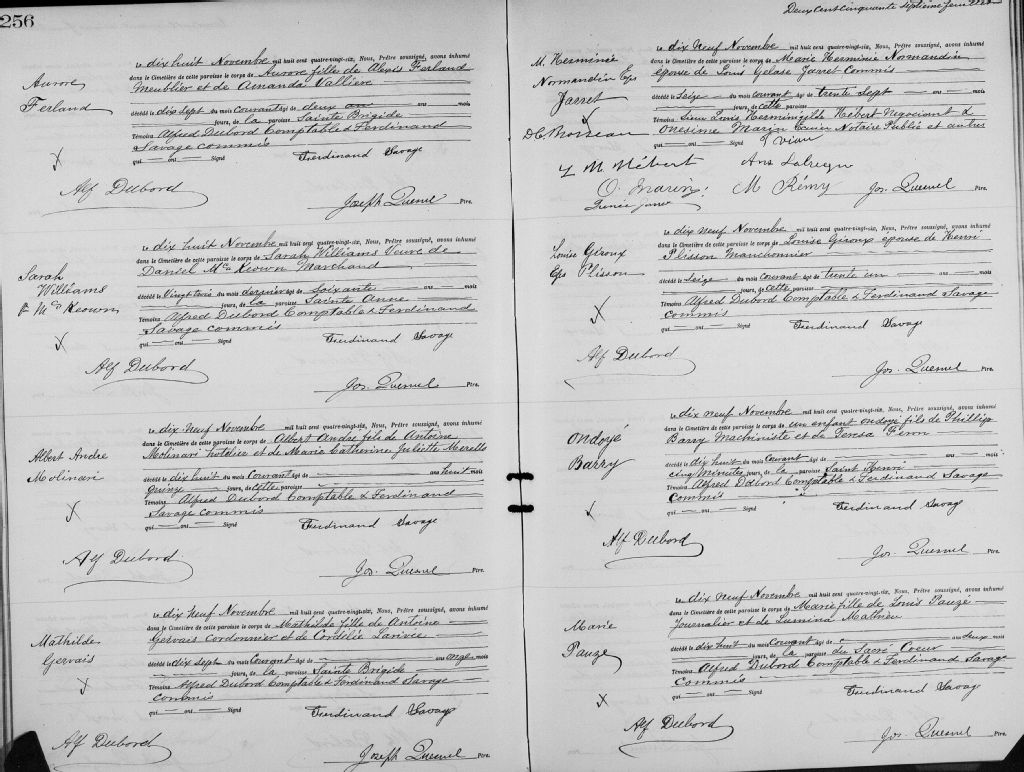 256
Aurore
Ferland
Le dix huit Novembre mil huit cent quatre-vingt-six, Nous, Prêtre soussigné, avons inhumé
dans le Cimetière de cette paroisse le corps de Aurore fille de Alexis Ferland
Meublier et de Amanda Vallière
décédé le dix sept du mois courant âgé de deux an ans mois
jours, de la paroisse Sainte Brigide
Témoins Alfred Dubord Comptable & Ferdinand
Savage commis
qui ont Signé Ferdinand Savage
Alf Dubord
Joseph Quesnel Ptre.
Sarah
Williams
Mc Keown
Le dix huit Novembre mil huit cent quatre-vingt-six, Nous, Prêtre soussigné, avons inhumé
dans le Cimetière de cette paroisse le corps de Sarah Williams Veuve de
Daniel Mc Keown Marchand
décédé le Vingt trois du mois dernier âgé de Soixante ans mois
jours, de la paroisse Sainte Anne
Témoins Alfred Dubord Comptable & Ferdinand
Savage commis
qui ont Signé Ferdinand Savage
Alf Dubord
Jos. Quesnel Ptre.
Albert Andre
Molinari
Le dix neuf Novembre mil huit cent quatre-vingt-six, Nous, Prêtre soussigné, avons inhumé
dans le Cimetière de cette paroisse le corps de Albert Andre fils de Antoine
Molinari hotelier et de Marie Catherine Juliette Merello
décédé le dix huit du mois Courant âgé de ans huit mois
quinze jours, de cette paroisse
Témoins Alfred Dubord Comptable & Ferdinand
Savage commis
qui ont Signé Ferdinand Savage
Alf Dubord
Jos. Quesnel Ptre.
Mathilde
Gervais
Le dix neuf Novembre mil huit cent quatre-vingt-six, Nous, Prêtre soussigné, avons inhumé
dans le Cimetière de cette paroisse le corps de Mathilde fille de Antoine
Gervais Cordonnier et de Cordélie Larivée
décédé le dix sept du mois Courant âgé de ans onze mois
jours, de la paroisse Sainte Brigide
Témoins Alfred Dubord Comptable & Ferdinand Savage
commis
qui ont Signé Ferdinand Savage
Alf Dubord
Joseph Quesnel Ptre.
Deux Cent Cinquante Septième feuillet
M. Herminie
Normandin Eps
Jarret
Le dix Neuf Novembre mil huit cent quatre-vingt-six, Nous, Prêtre soussigné, avons inhumé
dans le Cimetière de cette paroisse le corps de Marie Herminie Normandin
epouse de Louis Gelase Jarret Commis
décédé le Seize du mois courant âgé de trente Sept ans mois
jours, de cette paroisse
Témoins Sieur Louis Herménégilde Hebert Négociant &
Onesime Marin Notaire Public et autres
qui ont Signé
L M Hébert
O. Marin
M Rémy
Jos. Quesnel Ptre.
Louise Giroux
Eps Plisson
Le dix neuf Novembre mil huit cent quatre-vingt-six, Nous, Prêtre soussigné, avons inhumé
dans le Cimetière de cette paroisse le corps de Louise Giroux epouse de Henri
Plisson
décédé le Seize du mois Courant âgé de trente un ans mois
jours, de cette paroisse
Témoins Alfred Dubord Comptable & Ferdinand Savage
commis
qui ont Signé Ferdinand Savage
Alf Dubord
Jos. Quesnel Ptre.
Ondoyé
Barry
Le dix neuf Novembre mil huit cent quatre-vingt-six, Nous, Prêtre soussigné, avons inhumé
dans le Cimetière de cette paroisse le corps de un enfant ondoyé fils de Phillips
Barry Machiniste et de Teresa
décédé le dix huit du mois Courant âgé de ans mois
cinq minutes jours, de la paroisse Saint Henri
Témoins Alfred Dubord Comptable & Ferdinand Savage
commis
qui ont Signé Ferdinand Savage
Alf Dubord
Jos. Quesnel Ptre.
Marie
Pauzé
Le dix neuf Novembre mil huit cent quatre-vingt-six, Nous, Prêtre soussigné, avons inhumé
dans le Cimetière de cette paroisse le corps de Marie fille de Louis Pauzé
Journalier et de Lumina Mathieu
décédé le dix huit du mois Courant âgé de ans deux mois
jours, de la paroisse du Sacré Coeur
Témoins Alfred Dubord Comptable & Ferdinand Savage
Commis
qui ont Signé Ferdinand Savage
Alf Dubord
Jos. Quesnel Ptre.